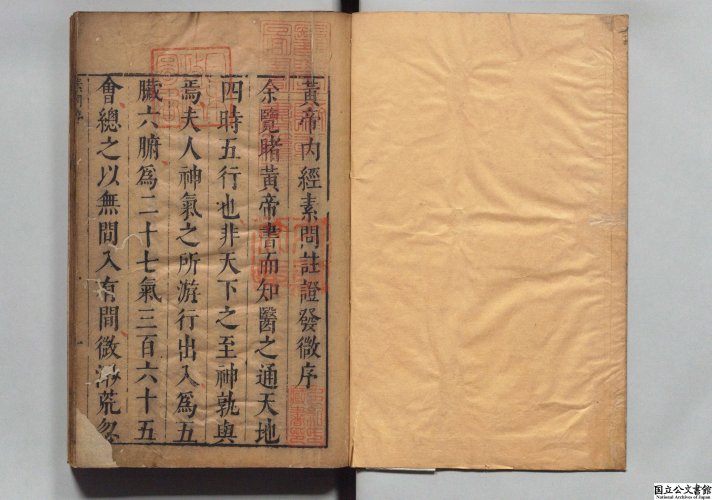 黃帝內經素問註證發微序
余覽睹黃帝書而知醫之通天地
四時五行也非天下之至神孰與
焉夫人神氣之所游行出入爲五
臟六腑爲二十七氣三百六十五
會總之以無間入有間微渺荒忽
素問序
国立公文書館
National Archives of Japan